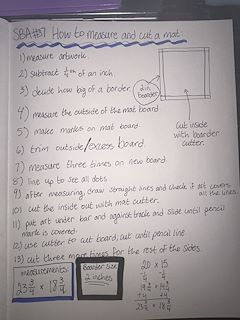 SBA#37 How to measure and cut a mat.
1) measure artwork
2) subtract 1/4th of an inch.
3) decide how big of a border.
2 in boarder
4) measure the outside of the mat board
5) make marks on mat board
6) trim outside/excess board.
7) measure three times on new board
8) line up to see all dots
9) after measuring, draw straight lines and check if art covers
all the lines.
10) cut the inside out with mat cutter.
11) put art under bar and against track and slide until pencil
mark is covered
12) use cutter to cut board, cut until pencil line
13) cut three more times for the rest of the sides.
cut inside
with boarder
cutter.
measurements:
23 3/4 x 18 3/4
Boarder size
2 inches
20 x 15
-1/4 -1/4
19 3/4 14 3/4
+4 +4
23 3/4 x 18 3/4